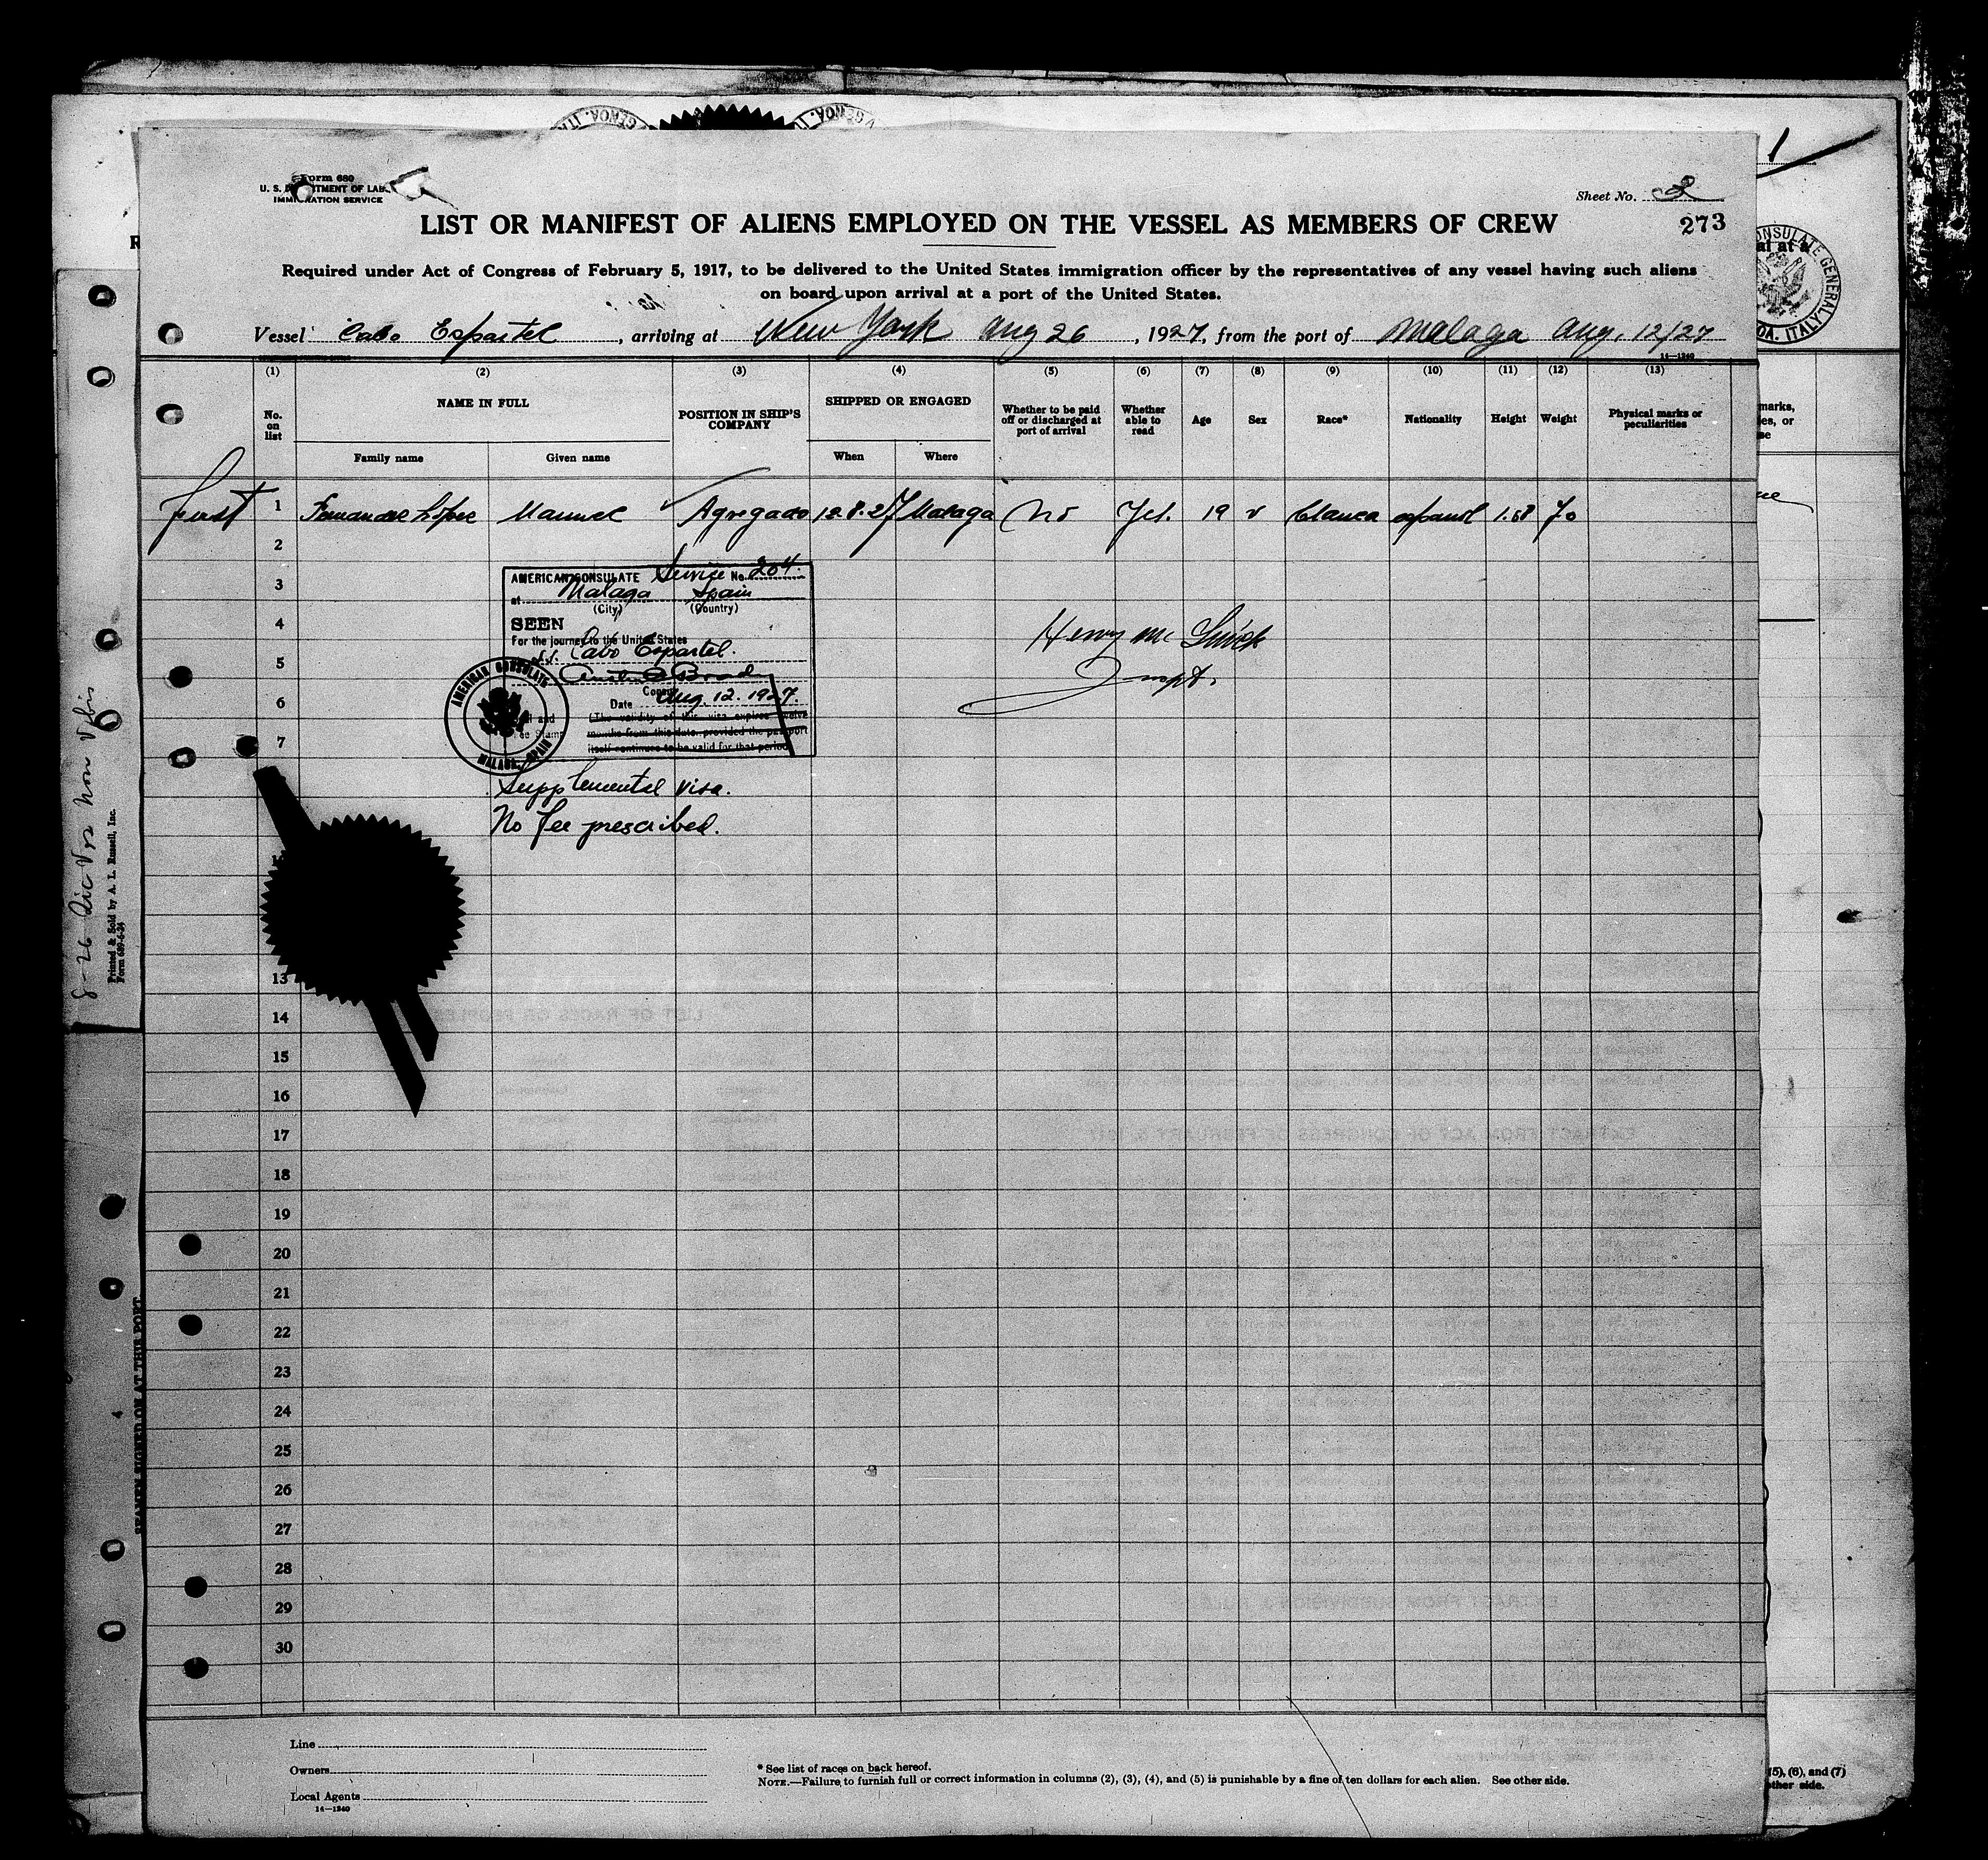 GENOA. IT
GENOA. IT
1
Form 680
U. S. D TMENT OF LAB
IMMIGRATION SERVICE
Sheet No. 2
273
LIST OR MANIFEST OF ALIENS EMPLOYED ON THE VESSEL AS MEMBERS OF CREW
Required under Act of Congress of February 5, 1917, to be delivered to the United States immigration officer by the representatives of any vessel having such aliens
on board upon arrival at a port of the United States.
Vessel Cabo Espartel, arriving at New York Aug 26, 1927, from the port of Malaga Aug. 12/27
14—1240
(1) (2) (3) (4) (5) (6) (7) (8) (9) (10) (11) (12) (13)
No. on list
NAME IN FULL
Family name Given name
POSITION IN SHIP'S COMPANY
SHIPPED OR ENGAGED
When Where
Whether to be paid off or discharged at port of arrival
Whether able to read
Age Sex Race* Nationality Height Weight
Physical marks or peculiarities
first 1 Fernandez López Manuel Agregado 12.8.27 Malaga No Yes. 19 v blanca español 1.68 70
2
3
4
5
6
7
AMERICAN CONSULATE Service No. 204.
at Malaga Spain
(City) (Country)
SEEN
For the journey to the United States
S.S. Cabo Espartel.
Consul
Date Aug. 12. 1927.
(The validity of this visa expires twelve
months from this date, provided the passport
itself continues to be valid for that period)
AMERICAN CONSULATE
MALAGA, SPAIN
Supplemental visa.
No fee prescribed.
Henry Mc
Inspt.
13
14
15
16
17
18
19
20
21
22
23
24
25
26
27
28
29
30
Line
Owners
Local Agents
14—1240
* See list of races on back hereof.
NOTE.—Failure to furnish full or correct information in columns (2), (3), (4), and (5) is punishable by a fine of ten dollars for each alien. See other side.
Printed & Sold by A. L. Russell, Inc.
Form 689-6-24
SEAMEN SIGNED ON AT THIS PORT
CONSULATE GENERAL
OA. ITALY
marks,
es, or
(5), (6), and (7)
other side.